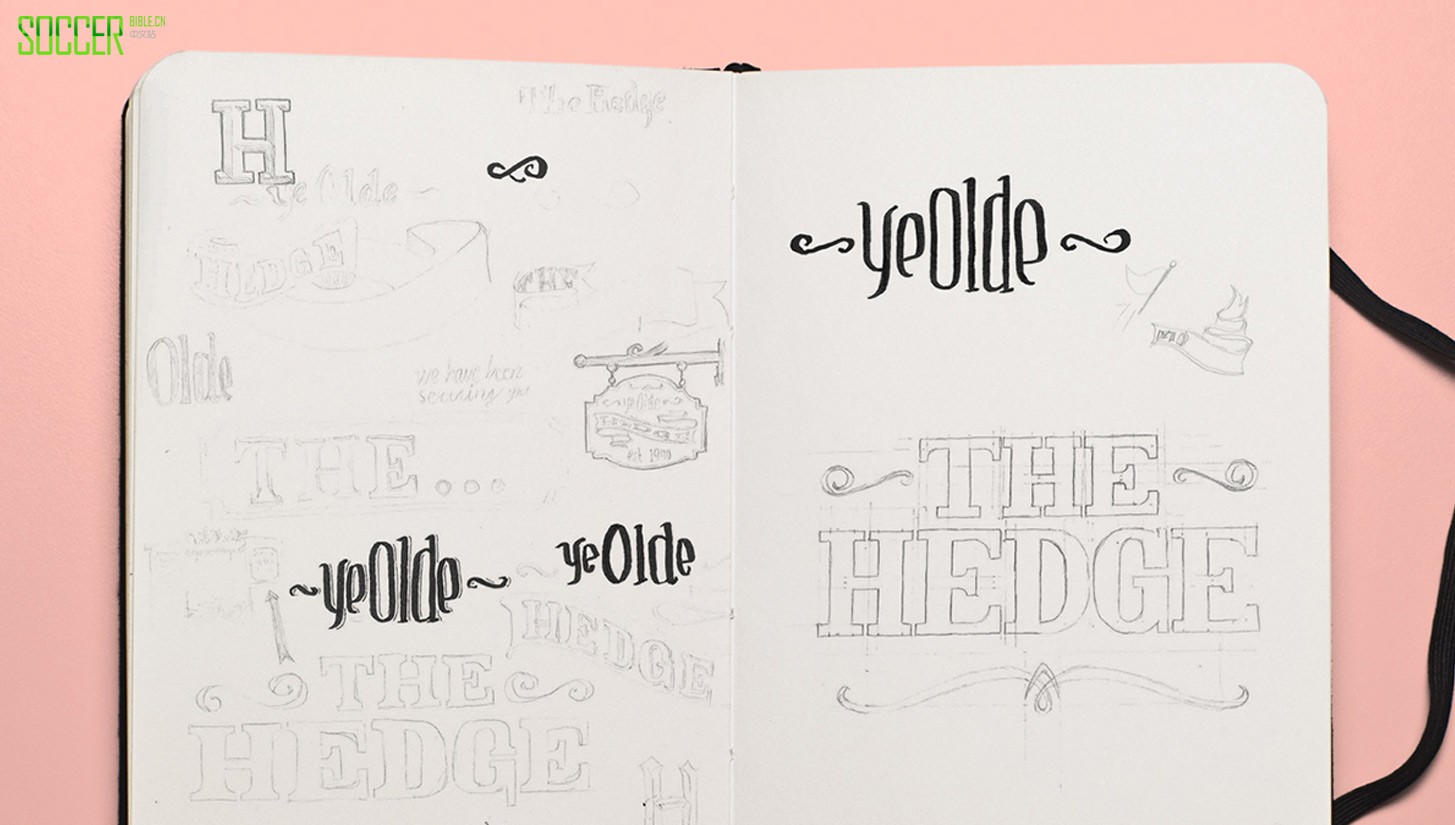 SOCCER
BIBLE.CN
中文站
H
The Hedge
~ ye Olde ~
HEDGE
THE
Olde
we have been
serving you
ye Olde
HEDGE
est 1900
THE...
~yeOlde~
yeOlde
HEDGE
THE
HEDGE
H
yeOlde
THE
HEDGE